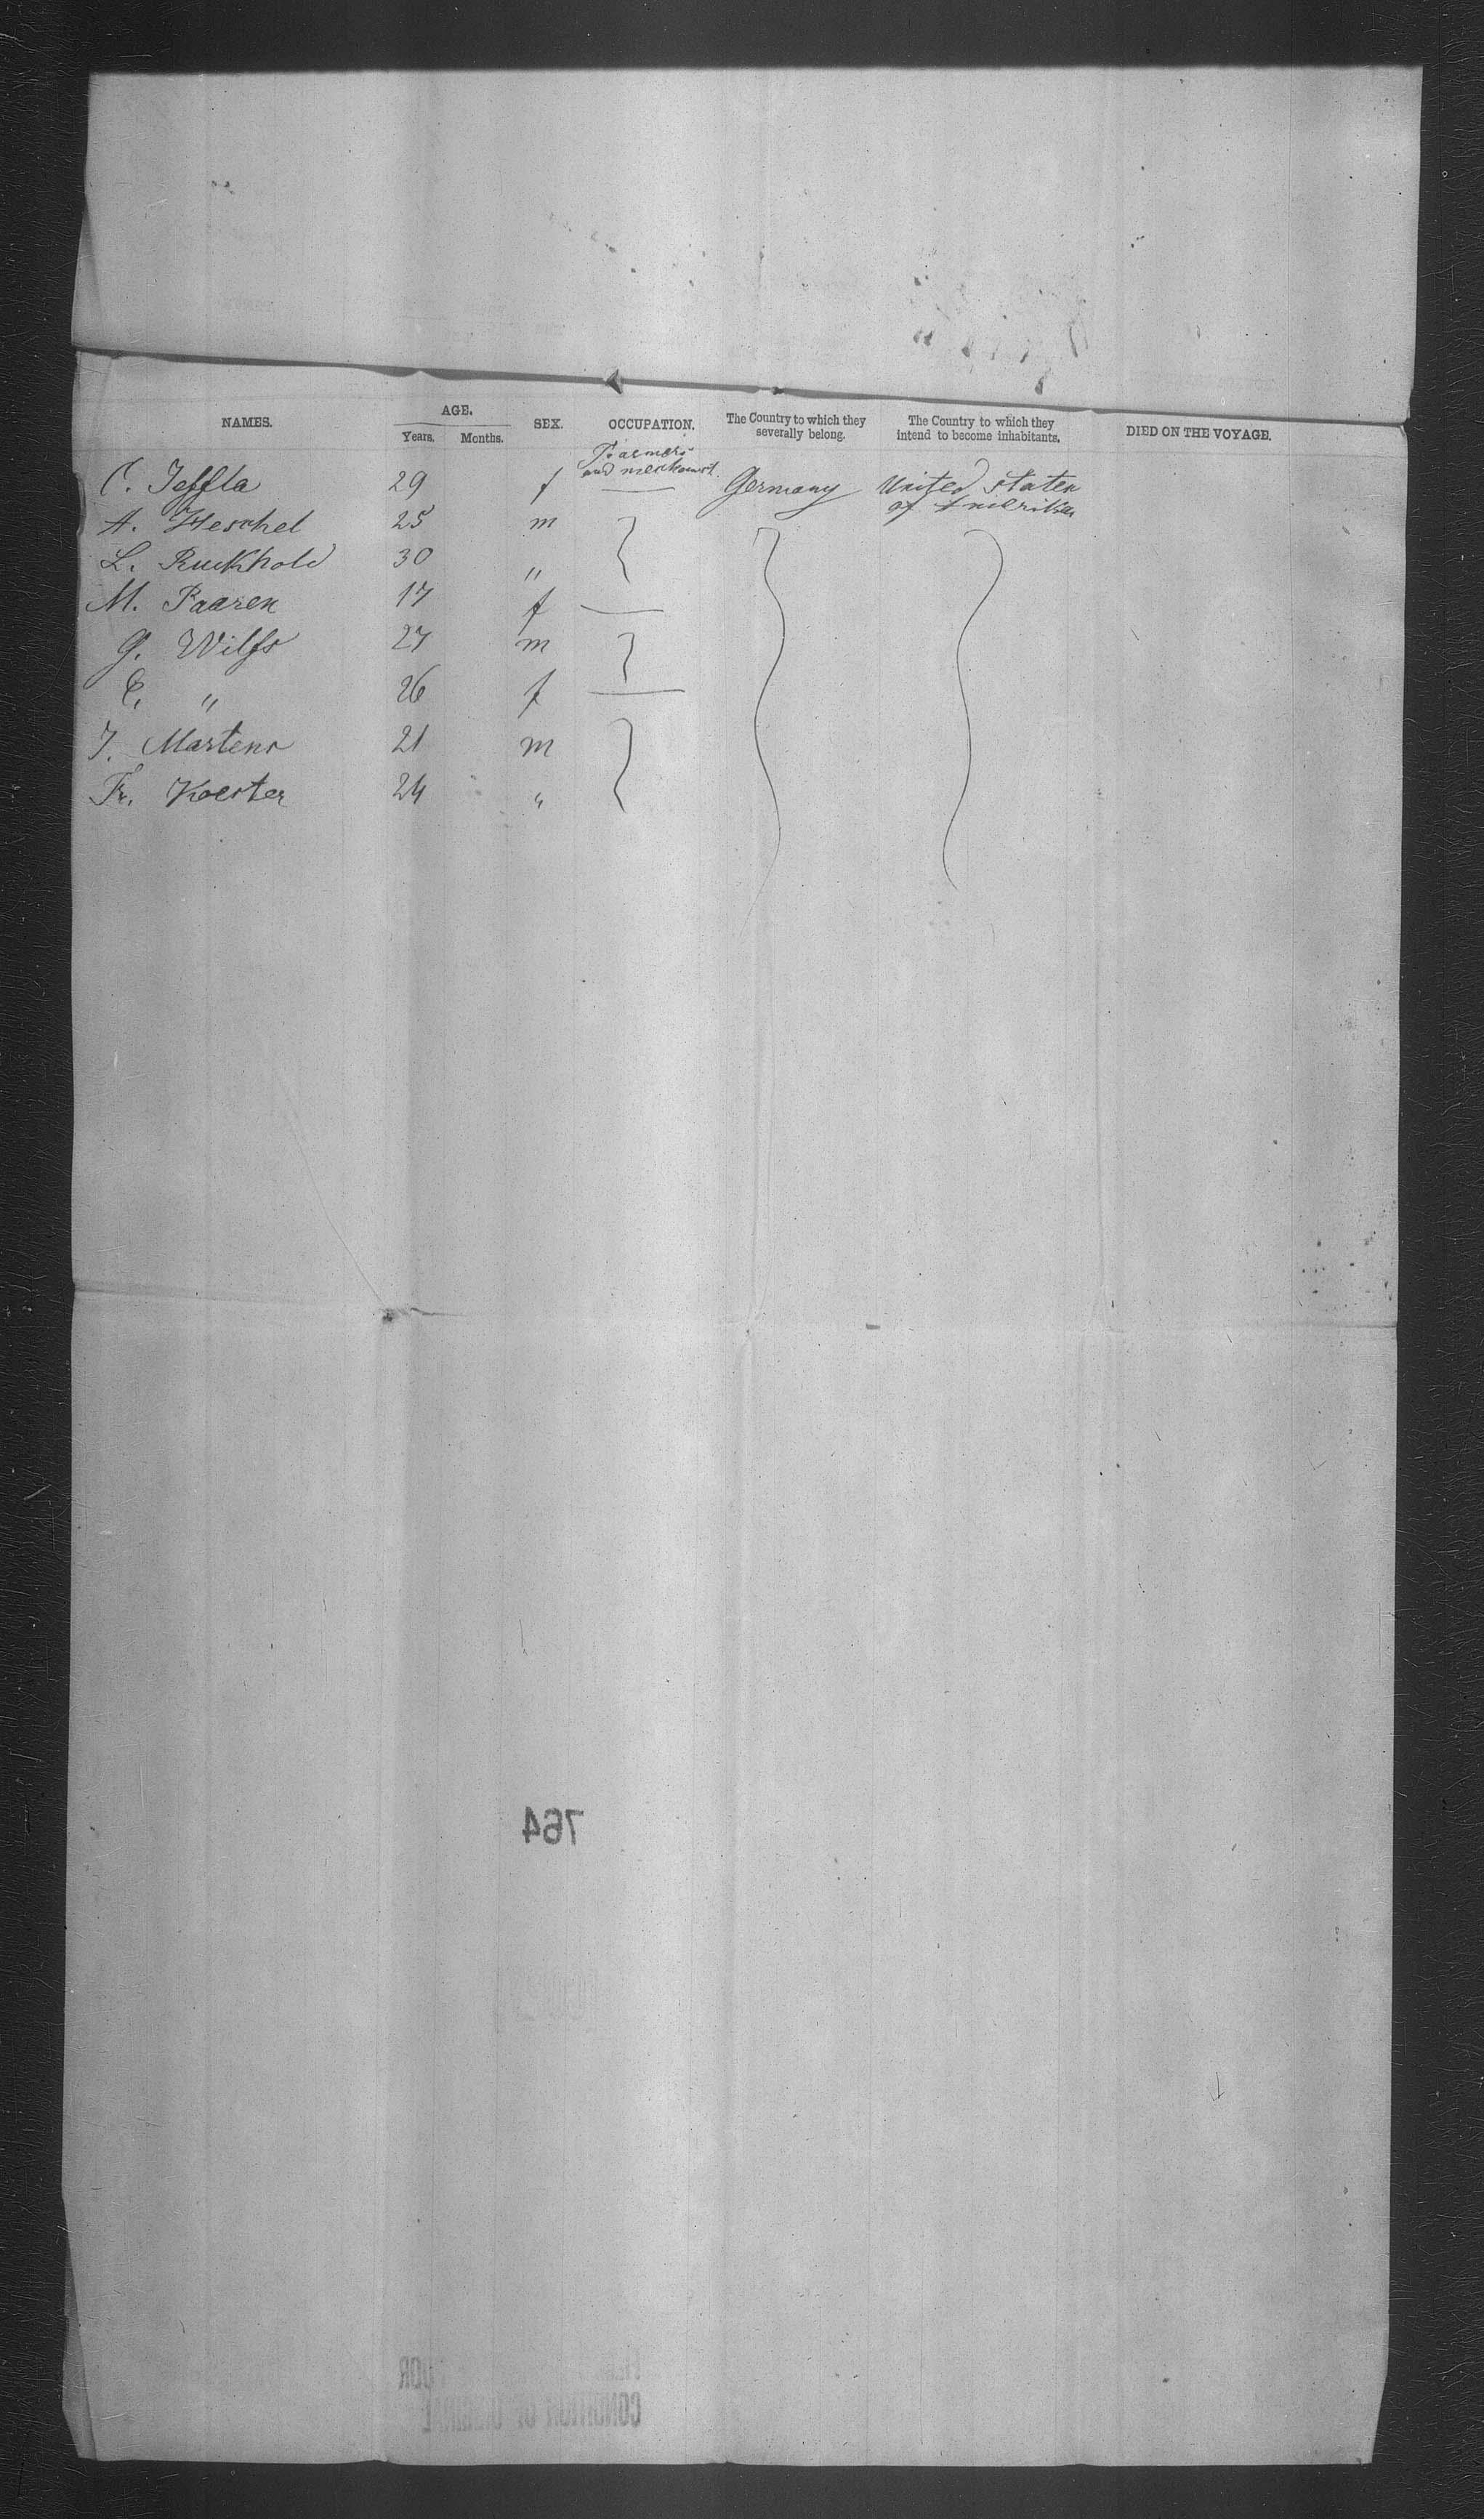 NAMES. AGE. SEX. OCCUPATION. The Country to which they severally belong. The Country to which they intend to become inhabitants. DIED ON THE VOYAGE.
Years. Months.
Farmers
and merchant
C. Teffla 29 f — Germany United Staten
of Amerika
A. Heschel 25 m
L. Ruckhold 30 "
M. Paaren 17 f —
G. Wilfs 27 m
C. " 26 f —
J. Martens 21 m
Fr. Koester 24 "
764
CONDITION OF ORIGINAL